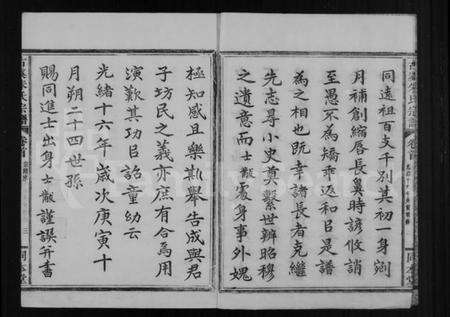 同遠祖百支千別其初一身剜
月補創縮脣長舄時諺攸誚
至愚不為矯乖返和呂是譜
為之相也旣幸諸長者克繼
先志尋小史奠繫世辨昭穆
之遺意而士黻處身事外媿
極知感且樂斯舉告成與君
子坊民之義亦庶有合焉用
演歎其功呂詒童幼云
光緒十六年歲次庚寅十
月朔二十四世孫
賜同進士出身士黻謹譔并書